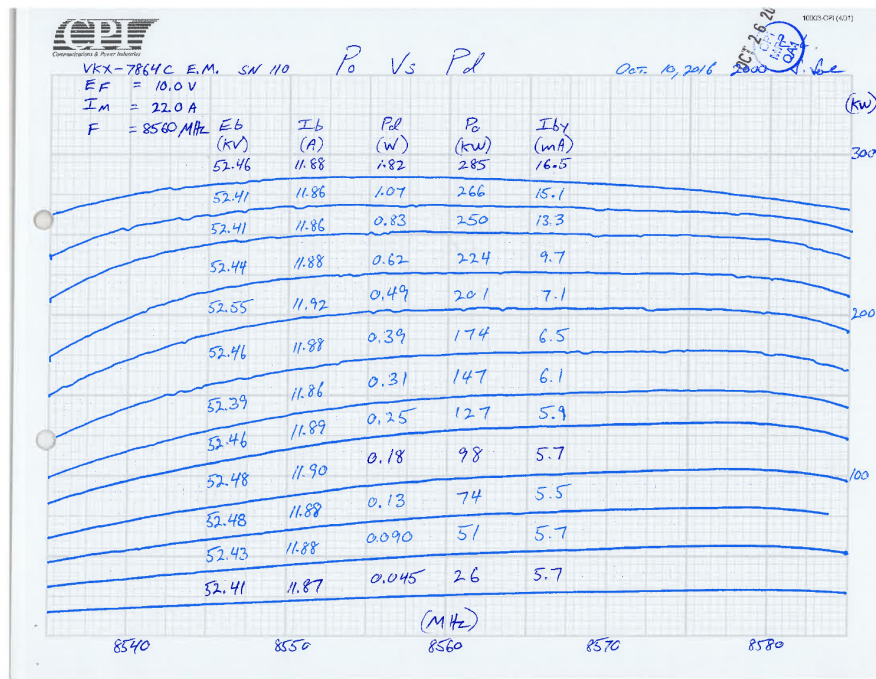 10003-CPI (4/01)
CPI
Communications & Power Industries
OCT 26 20
CPI
MPP
QA
VKX-7864C E.M. SN 110
Po Vs Pd
Oct. 10, 2016 2000
EF = 10.0 V
IM = 22.0 A
F = 8560 MHz
(KW)
Eb Ib Pd Po Iby
(KV) (A) (W) (KW) (mA)
300
52.46 11.88 1.82 285 16.5
52.41 11.86 1.07 266 15.1
52.41 11.86 0.83 250 13.3
52.44 11.88 0.62 224 9.7
52.55 11.92 0.49 201 7.1
200
52.46 11.88 0.39 174 6.5
52.39 11.86 0.31 147 6.1
52.46 11.89 0.25 127 5.9
52.48 11.90 0.18 98 5.7
100
52.48 11.88 0.13 74 5.5
52.43 11.88 0.090 51 5.7
52.41 11.87 0.045 26 5.7
(MHz)
8540 8550 8560 8570 8580